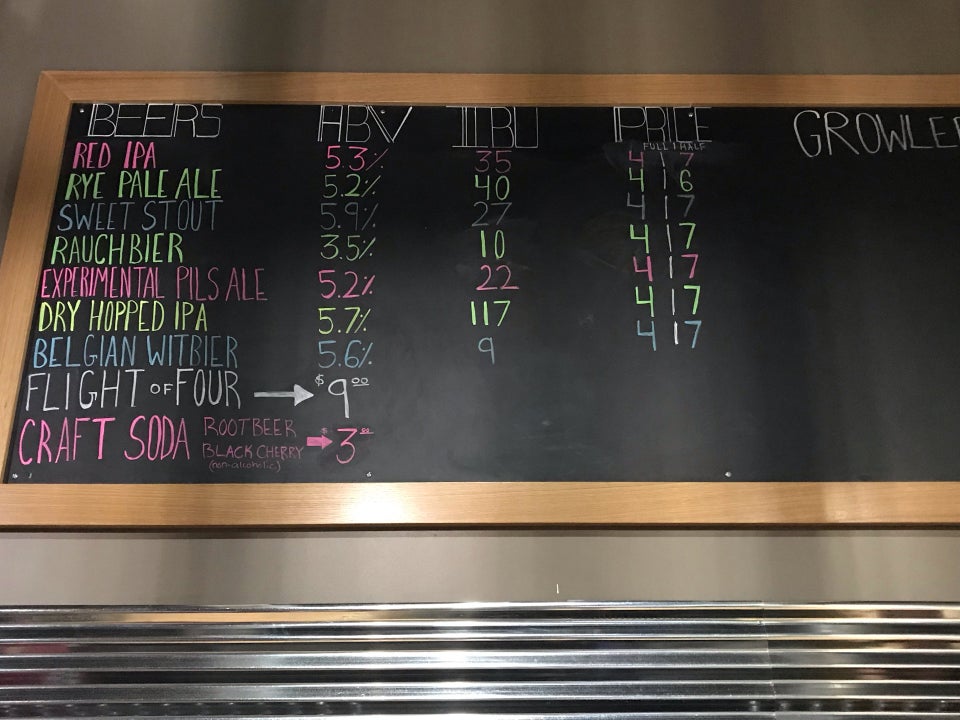 BEERS ABV IBU PRICE GROWLER
FULL | HALF
RED IPA 5.3% 35 4 | 7
RYE PALE ALE 5.2% 40 4 | 6
SWEET STOUT 5.9% 27 4 | 7
RAUCHBIER 3.5% 10 4 | 7
EXPERIMENTAL PILS ALE 5.2% 22 4 | 7
DRY HOPPED IPA 5.7% 117 4 | 7
BELGIAN WITBIER 5.6% 9 4 | 7
FLIGHT OF FOUR → $9.00
CRAFT SODA ROOTBEER
BLACK CHERRY → $3.00
(non-alcoholic)